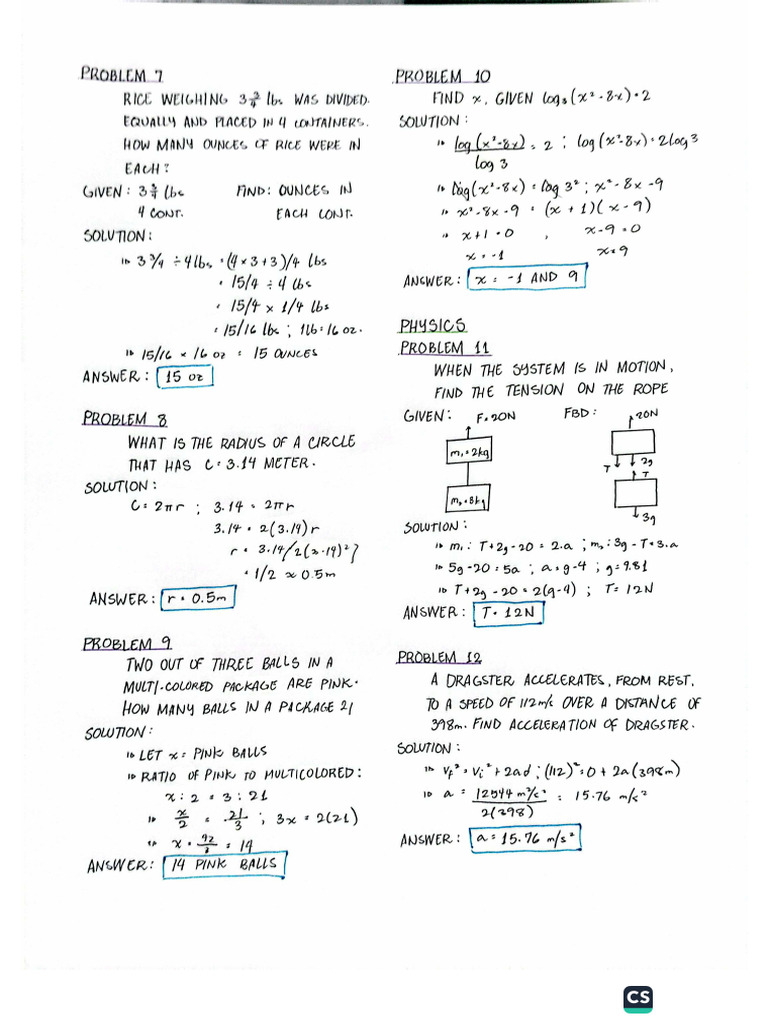 PROBLEM 7
RICE WEIGHING 3 3/4 lbs WAS DIVIDED.
EQUALLY AND PLACED IN 4 CONTAINERS.
HOW MANY OUNCES OF RICE WERE IN
EACH?
GIVEN: 3 3/4 lbs FIND: OUNCES IN
4 CONT. EACH CONT.
SOLUTION:
3 3/4 ÷ 4 lbs = (4 × 3 + 3)/4 lbs
= 15/4 ÷ 4 lbs
= 15/4 × 1/4 lbs
= 15/16 lbs ; 1lb = 16 oz.
15/16 × 16 oz = 15 OUNCES
ANSWER: 15 oz
PROBLEM 8
WHAT IS THE RADIUS OF A CIRCLE
THAT HAS C = 3.14 METER.
SOLUTION:
C = 2πr ; 3.14 = 2πr
3.14 = 2(3.14)r
r = 3.14/2(3.14)
= 1/2 ≈ 0.5m
ANSWER: r = 0.5m
PROBLEM 9
TWO OUT OF THREE BALLS IN A
MULTI-COLORED PACKAGE ARE PINK.
HOW MANY BALLS IN A PACKAGE 21
SOLUTION:
LET x = PINK BALLS
RATIO OF PINK TO MULTICOLORED:
x : 2 = 3 : 21
x/2 = 21/3 ; 3x = 2(21)
x = 42/3 = 14
ANSWER: 14 PINK BALLS
PROBLEM 10
FIND x, GIVEN log₃(x²-8x) = 2
SOLUTION:
log(x²-8x)/log 3 = 2 ; log(x²-8x) = 2log 3
log(x²-8x) = log 3² ; x²-8x-9
x²-8x-9 = (x+1)(x-9)
x+1 = 0 , x-9 = 0
x = -1 x = 9
ANSWER: x = -1 AND 9
PHYSICS
PROBLEM 11
WHEN THE SYSTEM IS IN MOTION,
FIND THE TENSION ON THE ROPE
GIVEN: F = 20N FBD: 20N
m₁ = 2kg
T 2g
T
3g
SOLUTION:
m₁: T+2g-20 = 2.a ; m₂: 3g-T = 3.a
5g-20 = 5a ; a = g-4 ; g = 9.81
T+2g-20 = 2(g-4) ; T = 12N
ANSWER: T = 12N
PROBLEM 12
A DRAGSTER ACCELERATES, FROM REST,
TO A SPEED OF 112m/s OVER A DISTANCE OF
398m. FIND ACCELERATION OF DRAGSTER.
SOLUTION:
Vf² = Vi² + 2ad ; (112)² = 0 + 2a(398m)
a = 12544 m²/s²/2(398) = 15.76 m/s²
ANSWER: a = 15.76 m/s²
CS